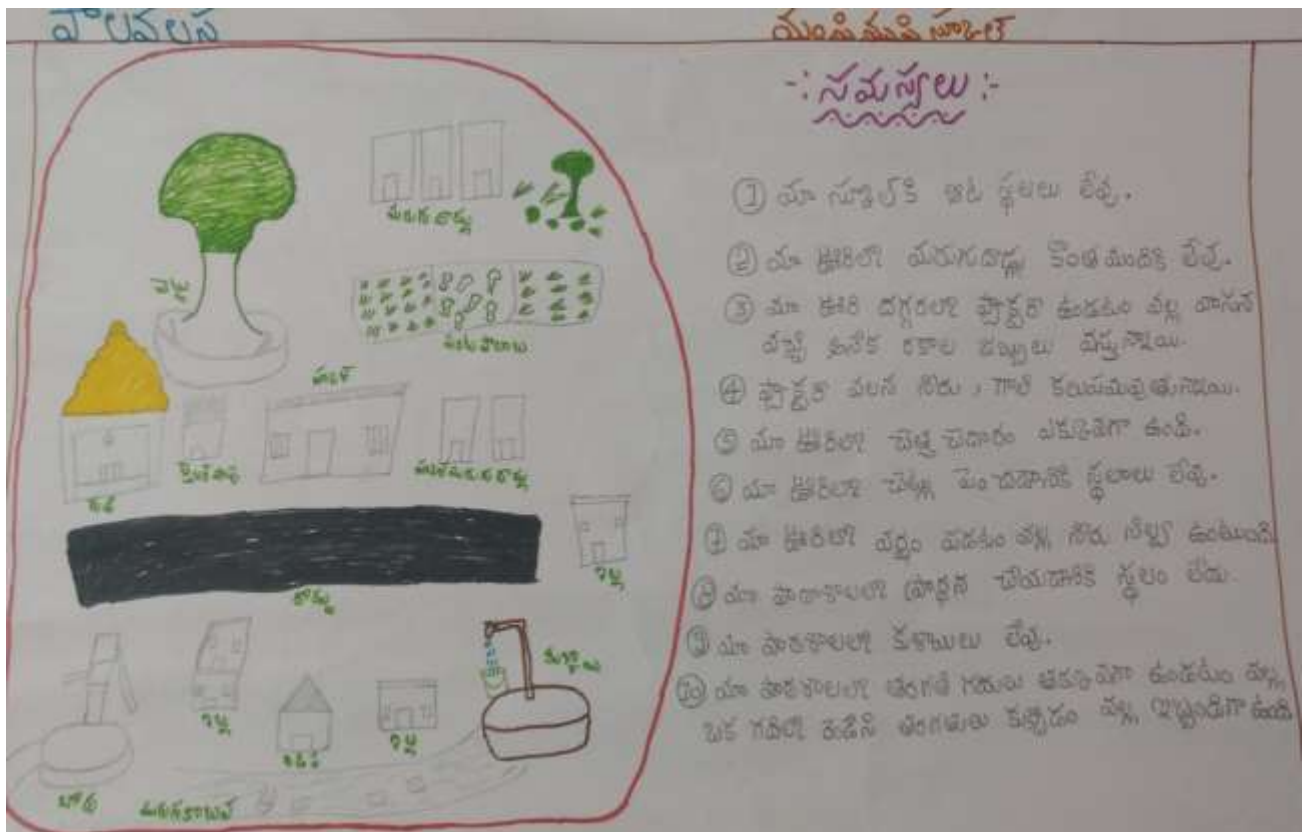 పాలవలస
యంపియుపి స్కూల్
-: సమస్యలు :-
① మా స్కూల్ కి ఆట స్థలలు లేవు.
② మా ఊరిలో మరుగుదొడ్లు కొంతమందికి లేవు.
③ మా ఊరి దగ్గరలో ఫ్యాక్టరీ ఉండటం వల్ల వాసన
వచ్చి అనేక రకాల జబ్బులు వస్తున్నాయి.
④ ఫ్యాక్టరీ వలన నీరు, గాలి కలుషితమవుతున్నాయి.
⑤ మా ఊరిలో చెత్త చెదారం ఎక్కువగా ఉంది.
⑥ మా ఊరిలో చెట్లు పెంచడానికి స్థలాలు లేవు.
⑦ మా ఊరిలో వర్షం పడటం వల్ల నీరు నిల్వ ఉంటుంది
⑧ మా పాఠశాలలో ప్రార్థన చేయడానికి స్థలం లేదు.
⑨ మా పాఠశాలలో కుళాయిలు లేవు.
⑩ మా పాఠశాలలో తరగతి గదులు తక్కువగా ఉండటం వల్ల
ఒక గదిలో రెండేసి తరగతులు కుర్చోడం వల్ల ఇబ్బందిగా ఉంది
మరుగుదొడ్లు
చెట్టు
పంటపొలాలు
గుడి
రోడ్డు
ఇల్లు
ఇల్లు
ఇల్లు
కుళాయి
బోరు
మురుగుకాలువ